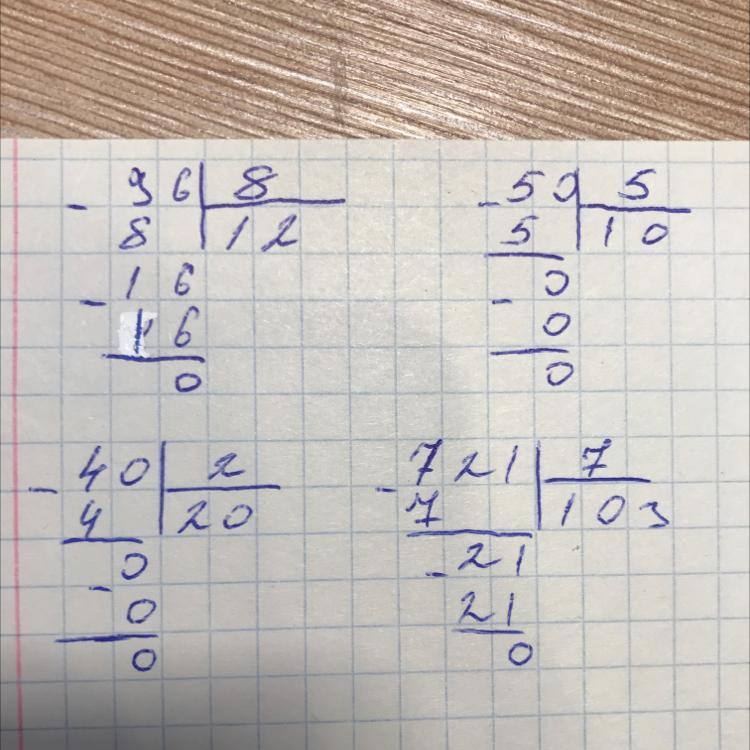 - 96 8
8 12
- 16
16
0
- 50 5
5 10
0
-
0
0
- 40 2
4 20
0
-
0
0
- 721 7
7 103
- 21
21
0